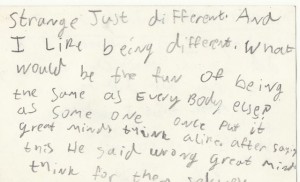 Strange Just different. And
I Like being different. What
would be the fun of being
the same as EVERY BODY else?
as some one once Put it
great minds think alike after saying
this He said wrong great minds
think for them